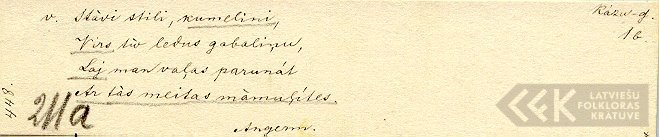 v. Stāvi stili, kumeliņi,
Virs tīv ledus gabaliņu,
Laj man vaļas parunāt
Ar tās meitas māmuļītes.
Angerm.
Kāzu-d.
16.
448.
211a
LATVIEŠU
FOLKLORAS
KRĀTUVE